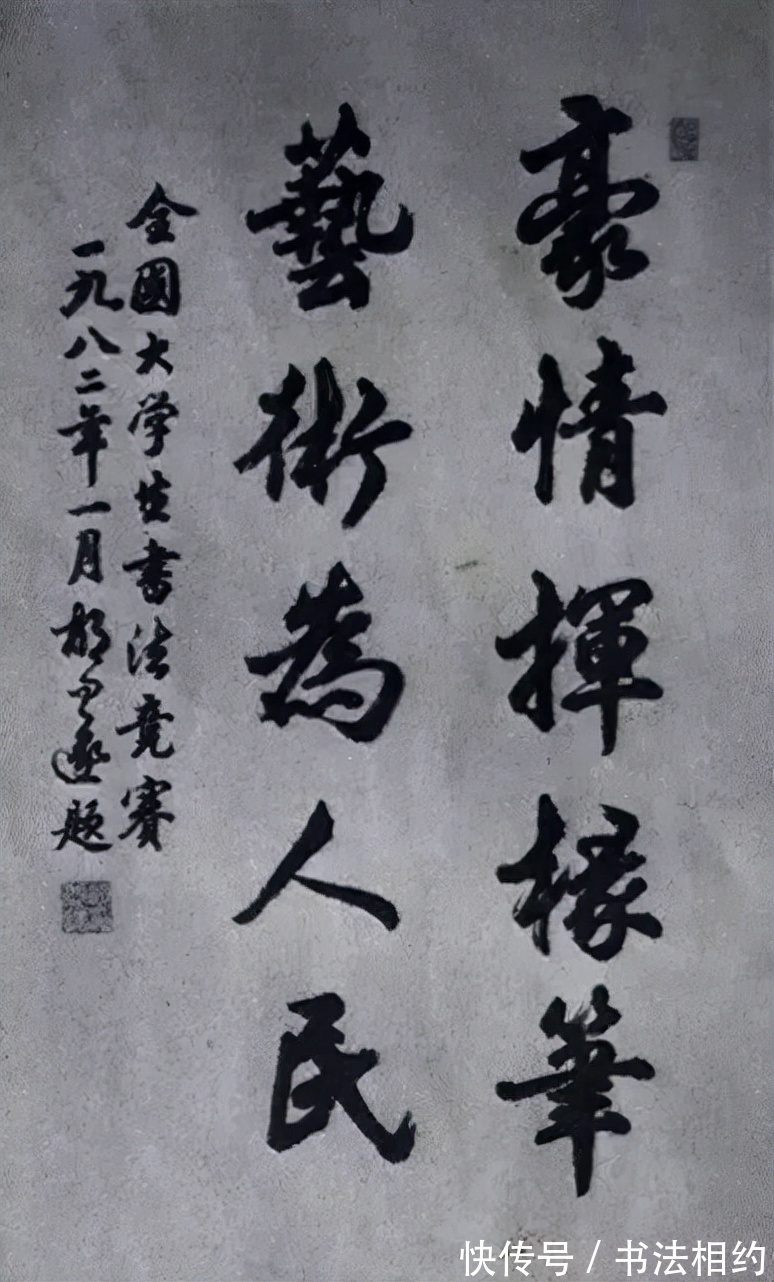 豪情揮椽筆
藝術為人民
全國大学生书法竞賽
一九八二年一月胡问遂题
快传号 / 书法相约